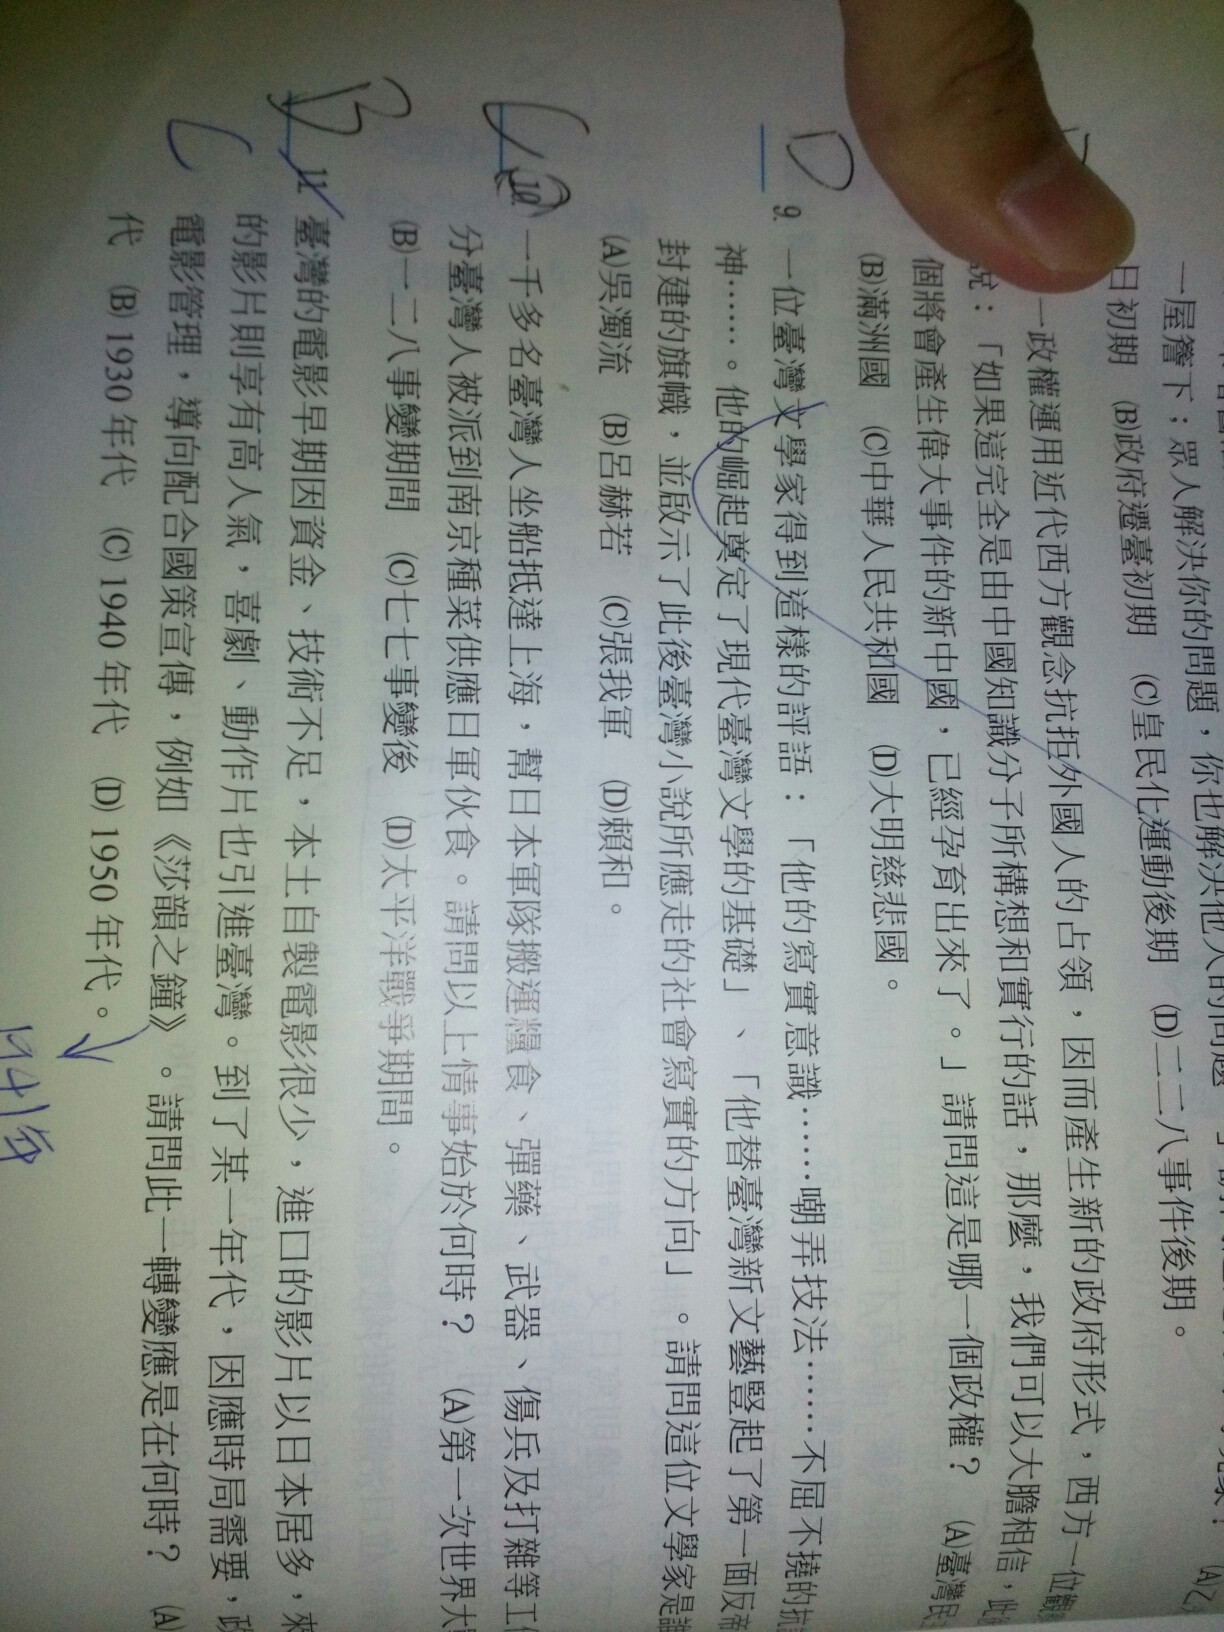 一屋簷下；眾人解決你的問題，你也解決他人的問題
日初期 (B)政府遷臺初期 (C)皇民化運動後期 (D)二二八事件後期。
一政權運用近代西方觀念抗拒外國人的占領，因而產生新的政府形式，西方一位觀
說：「如果這完全是由中國知識分子所構想和實行的話，那麼，我們可以大膽相信，此
個將會產生偉大事件的新中國，已經孕育出來了。」請問這是哪一個政權？ (A)臺灣民
(B)滿洲國 (C)中華人民共和國 (D)大明慈悲國。
D 9. 一位臺灣文學家得到這樣的評語：「他的寫實意識……嘲弄技法……不屈不撓的抗
神……。他的崛起奠定了現代臺灣文學的基礎」、「他替臺灣新文藝豎起了第一面反帝
封建的旗幟，並啟示了此後臺灣小說所應走的社會寫實的方向」。請問這位文學家是誰
(A)吳濁流 (B)呂赫若 (C)張我軍 (D)賴和。
C 10. 一千多名臺灣人坐船抵達上海，幫日本軍隊搬運糧食、彈藥、武器、傷兵及打雜等工
分臺灣人被派到南京種菜供應日軍伙食。請問以上情事始於何時？ (A)第一次世界大
(B)一二八事變期間 (C)七七事變後 (D)太平洋戰爭期間。
B 11. 臺灣的電影早期因資金、技術不足，本土自製電影很少，進口的影片以日本居多，
C 的影片則享有高人氣，喜劇、動作片也引進臺灣。到了某一年代，因應時局需要，
電影管理，導向配合國策宣傳，例如《莎韻之鐘》。請問此一轉變應是在何時？ (A)
代 (B) 1930 年代 (C) 1940 年代 (D) 1950 年代。
1941年